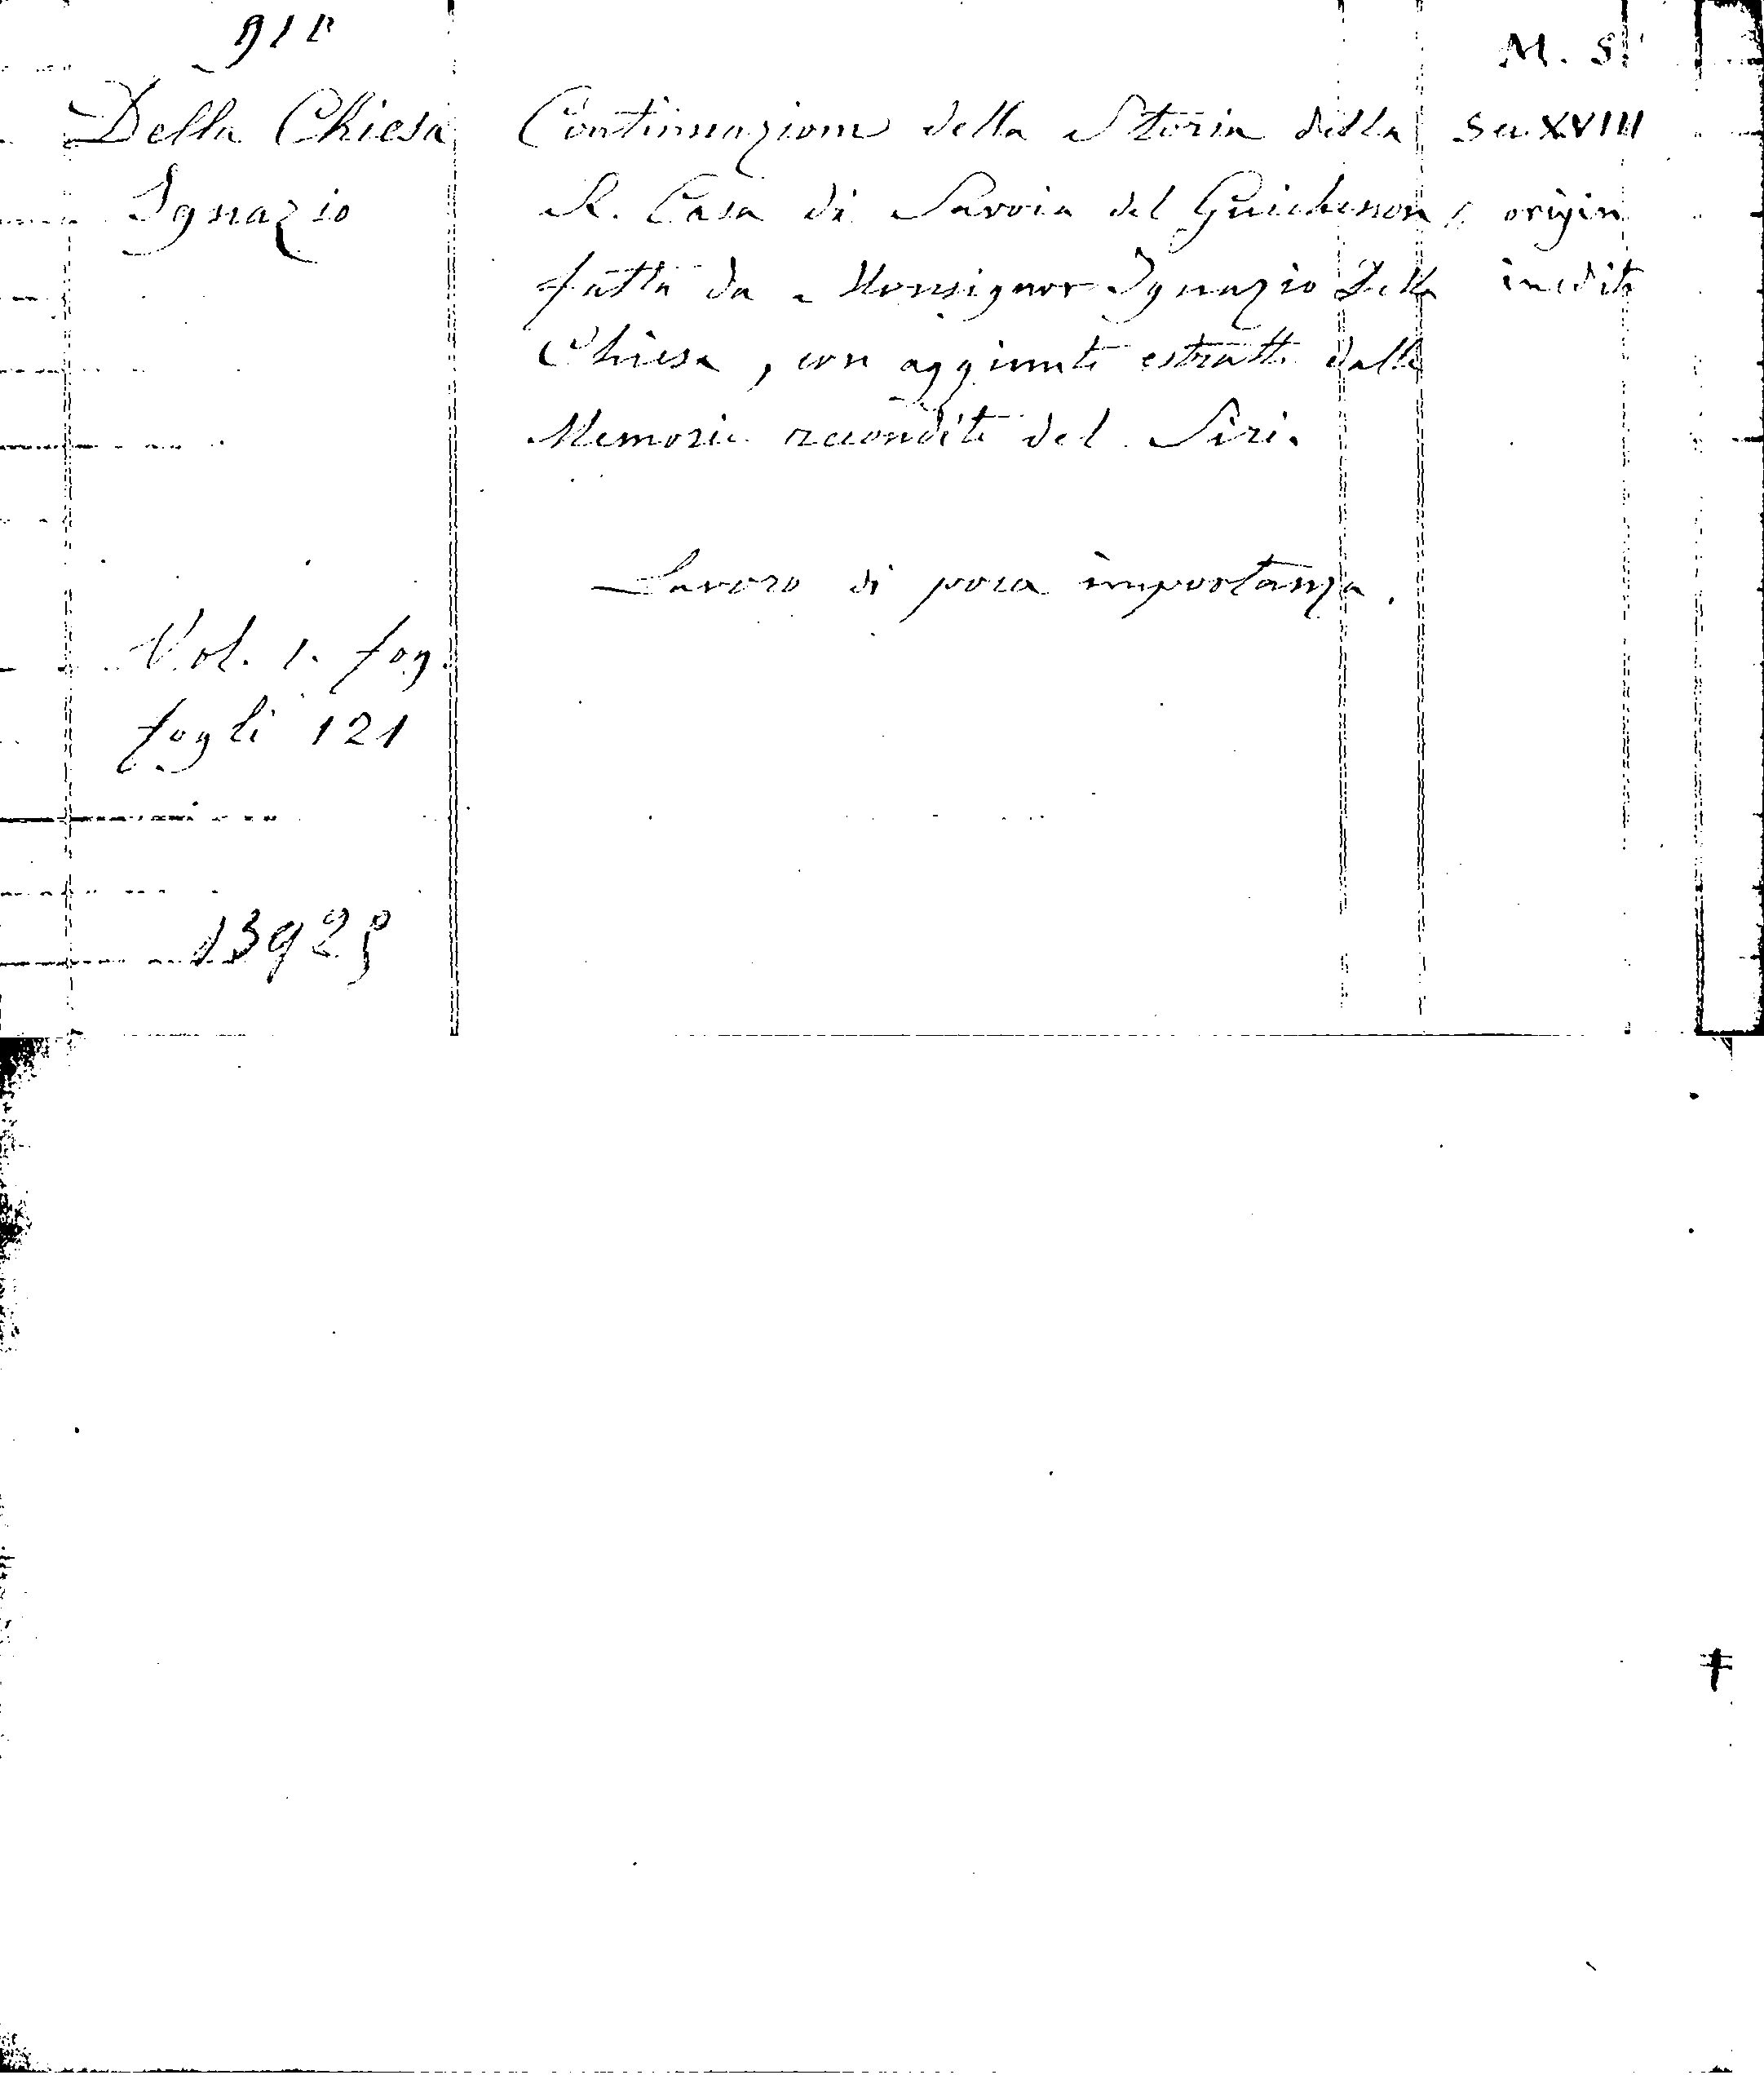 M. S.
Della Chiesa
Ignazio
Continuazione della Storia della
R. Casa di Savoia del Guichenon,
fatta da Monsignor Ignazio Della
Chiesa, con aggiunte estratte dalle
Memorie recondite del Siri.
Sec. XVIII
origin
inedito
Lavoro di poca importanza.
Vol. 1. fog.
fogli 121